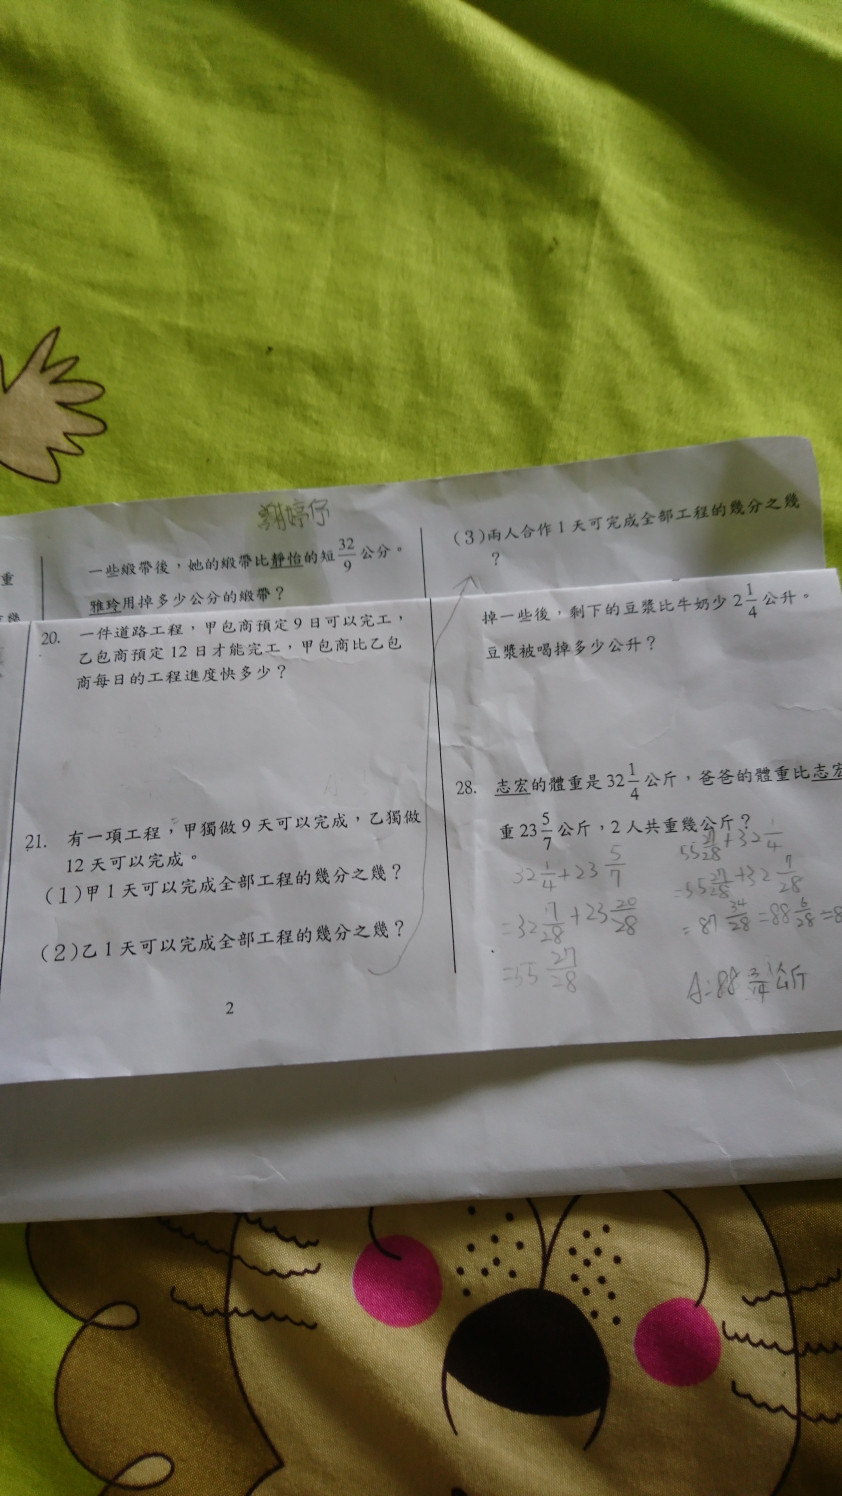 一些緞帶後,她的緞帶比靜怡的短32/9公分。
雅玲用掉多少公分的緞帶?
(3)兩人合作1天可完成全部工程的幾分之幾
?
重
20. 一件道路工程,甲包商預定9日可以完工,
乙包商預定12日才能完工,甲包商比乙包
商每日的工程進度快多少?
21. 有一項工程,甲獨做9天可以完成,乙獨做
12天可以完成。
(1)甲1天可以完成全部工程的幾分之幾?
(2)乙1天可以完成全部工程的幾分之幾?
2
掉一些後,剩下的豆漿比牛奶少2 1/4公升。
豆漿被喝掉多少公升?
28. 志宏的體重是32 1/4公斤,爸爸的體重比志宏
重23 5/7公斤,2人共重幾公斤?
32 1/4+23 5/7
=32 7/28+23 20/28
=55 27/28
55 27/28+32 1/4
=55 27/28+32 7/28
=87 34/28=88 6/28=8
A:88 3/14公斤